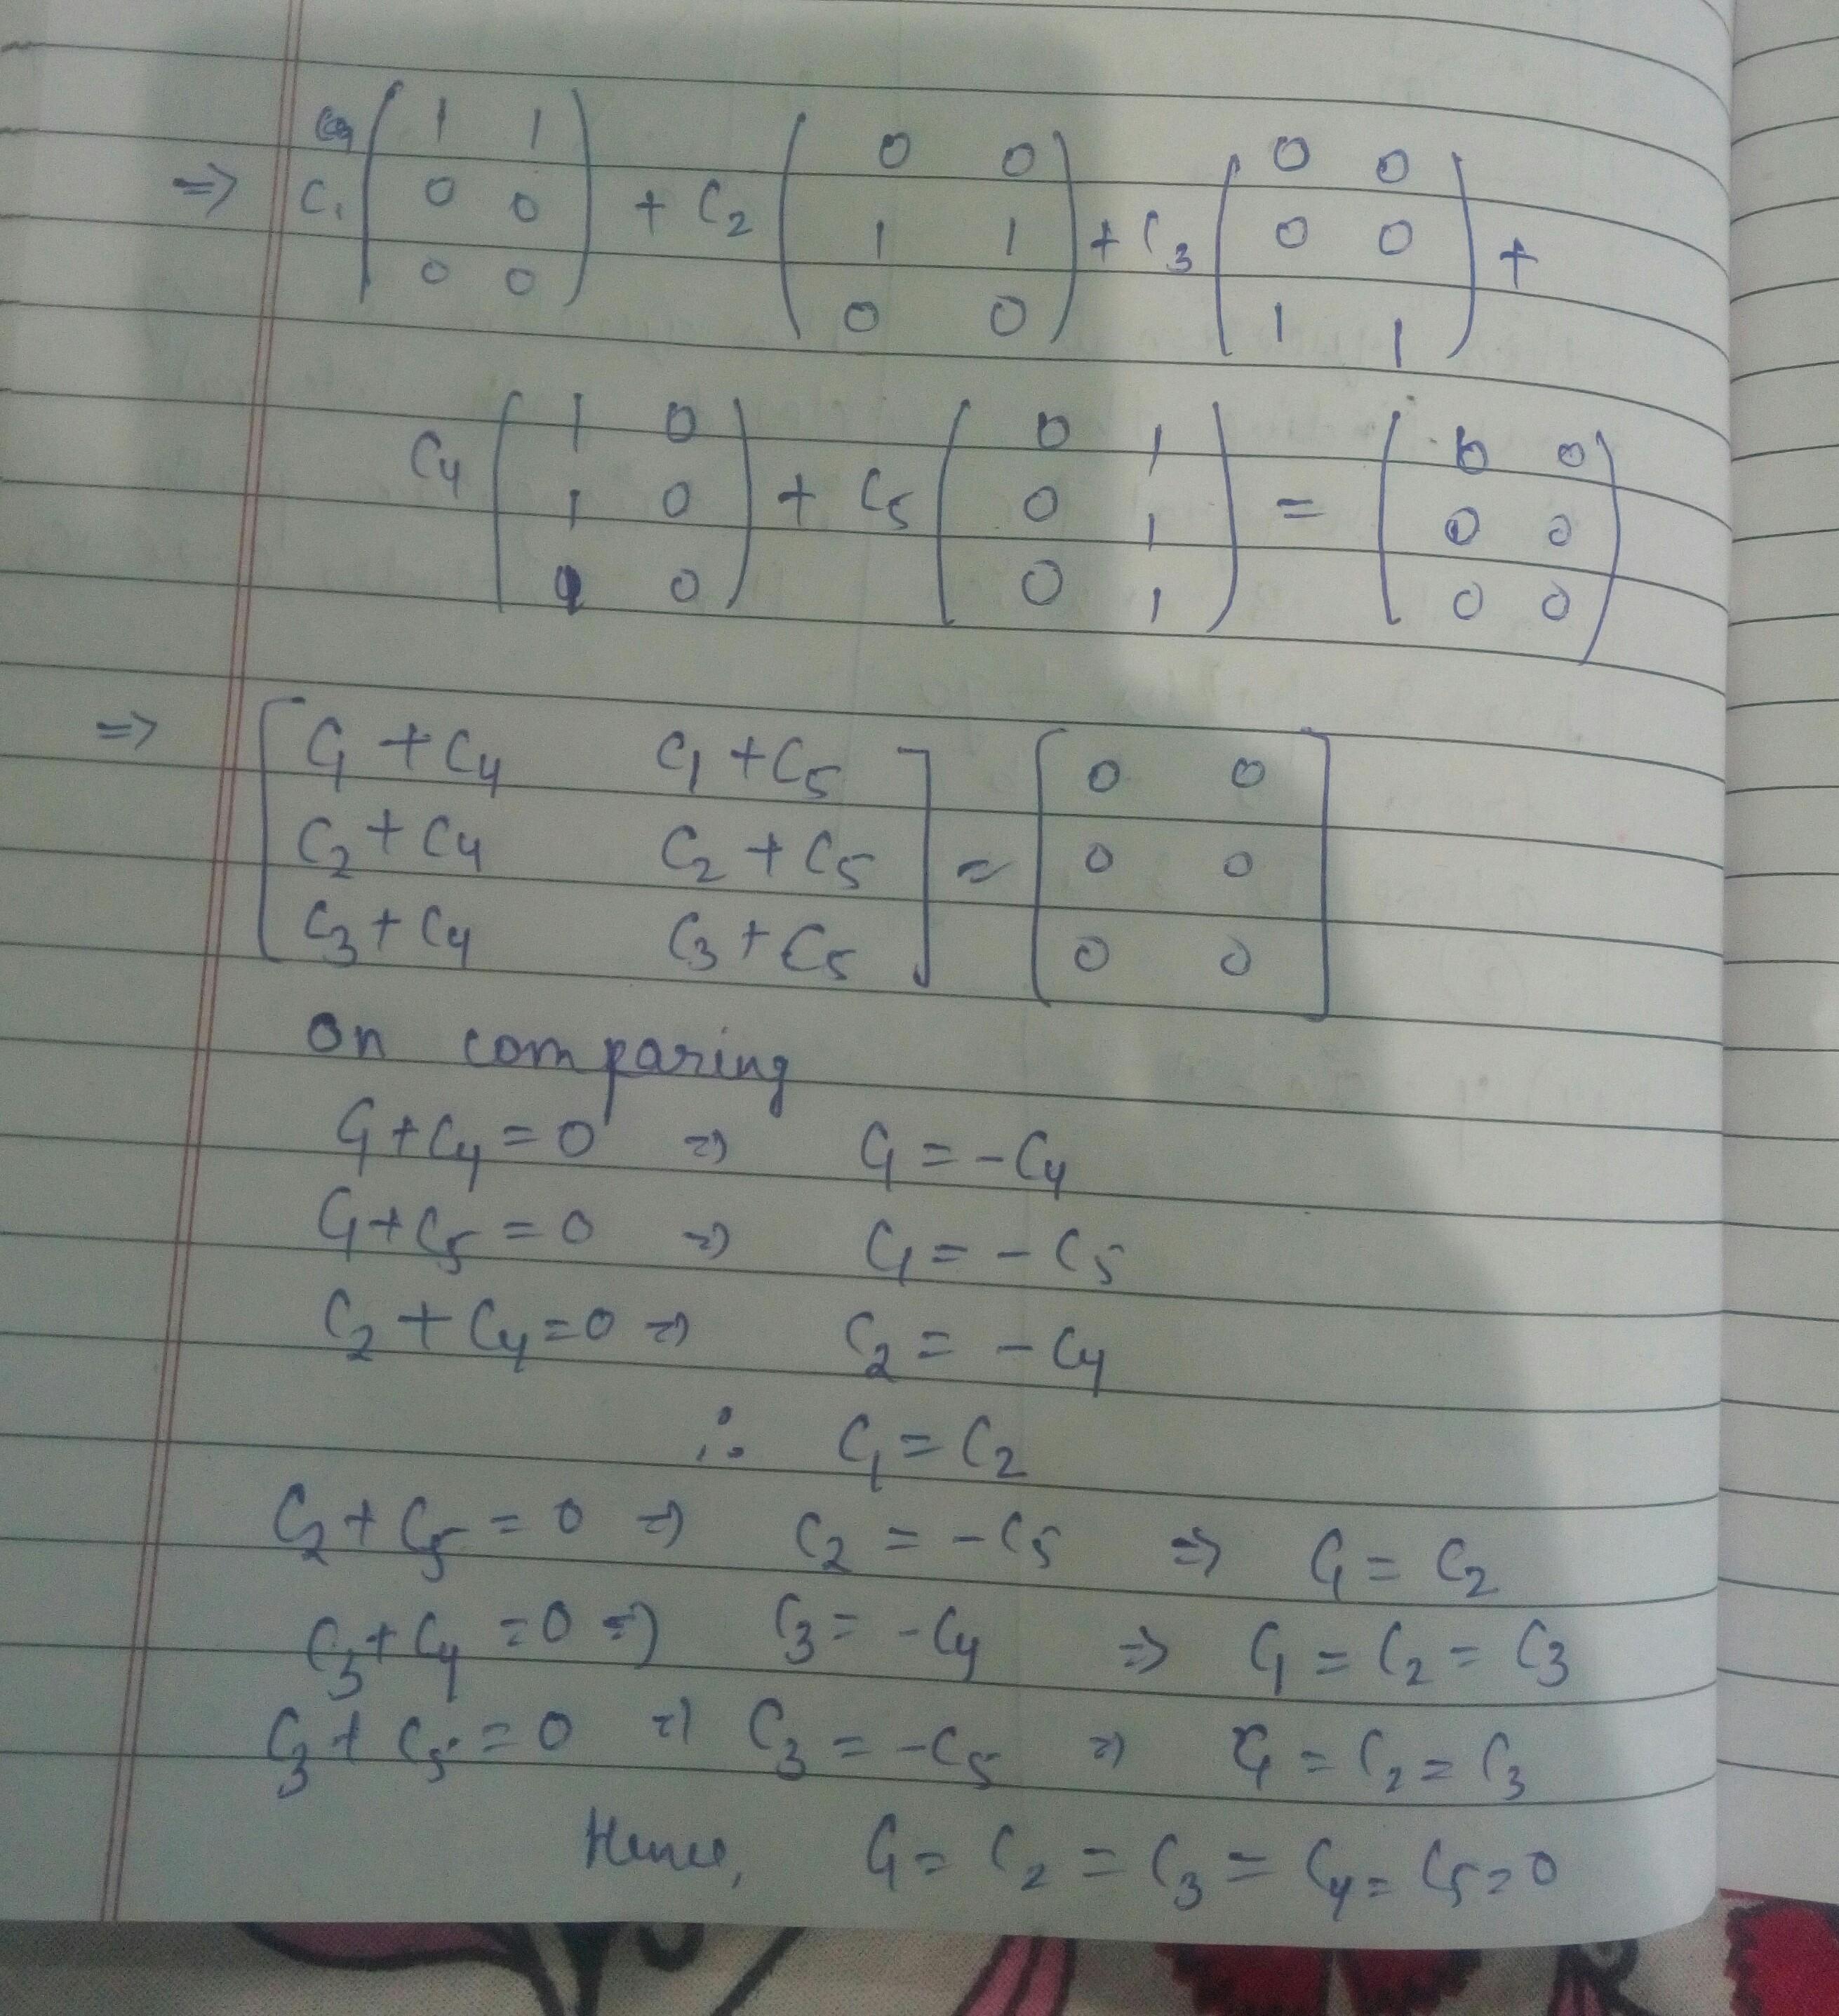 ⇒ C₁ ( 1 1 ; 0 0 ; 0 0 ) + C₂ ( 0 0 ; 1 1 ; 0 0 ) + C₃ ( 0 0 ; 0 0 ; 1 1 ) +
C₄ ( 1 0 ; 1 0 ; 1 0 ) + C₅ ( 0 1 ; 0 1 ; 0 1 ) = ( 0 0 ; 0 0 ; 0 0 )
⇒ [ C₁ + C₄ C₁ + C₅ ; C₂ + C₄ C₂ + C₅ ; C₃ + C₄ C₃ + C₅ ] = [ 0 0 ; 0 0 ; 0 0 ]
On comparing
C₁ + C₄ = 0 ⇒ C₁ = - C₄
C₁ + C₅ = 0 ⇒ C₁ = - C₅
C₂ + C₄ = 0 ⇒ C₂ = - C₄
∴ C₁ = C₂
C₂ + C₅ = 0 ⇒ C₂ = - C₅ ⇒ C₁ = C₂
C₃ + C₄ = 0 ⇒ C₃ = - C₄ ⇒ C₁ = C₂ = C₃
C₃ + C₅ = 0 ⇒ C₃ = - C₅ ⇒ C₁ = C₂ = C₃
Hence, C₁ = C₂ = C₃ = C₄ = C₅ = 0